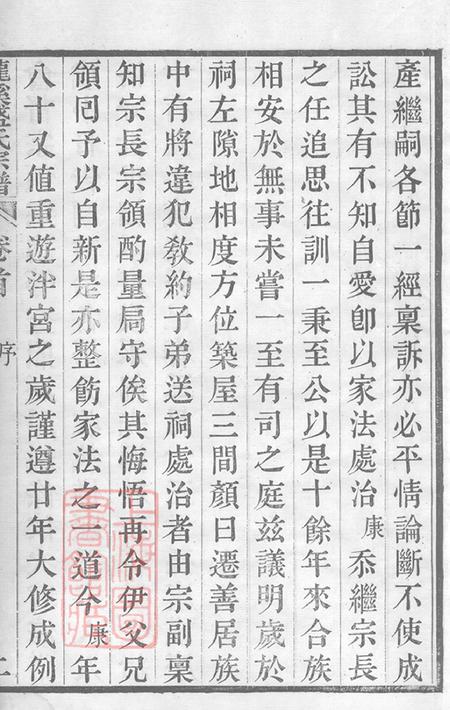 產繼嗣各節一經稟訴亦必平情論斷不使成
訟其有不知自愛卽以家法處治康忝繼宗長
之任追思往訓一秉至公以是十餘年來合族
相安於無事未嘗一至有司之庭玆議明歲於
祠左隙地相度方位築屋三間顏曰遷善居族
中有將違犯敎約子弟送祠處治者由宗副稟
知宗長宗領酌量局守俟其悔悟再令伊父兄
領囘予以自新是亦整飭家法之一道今康年
八十又值重遊泮宮之歲謹遵廿年大修成例
氏宗譜 卷首 序